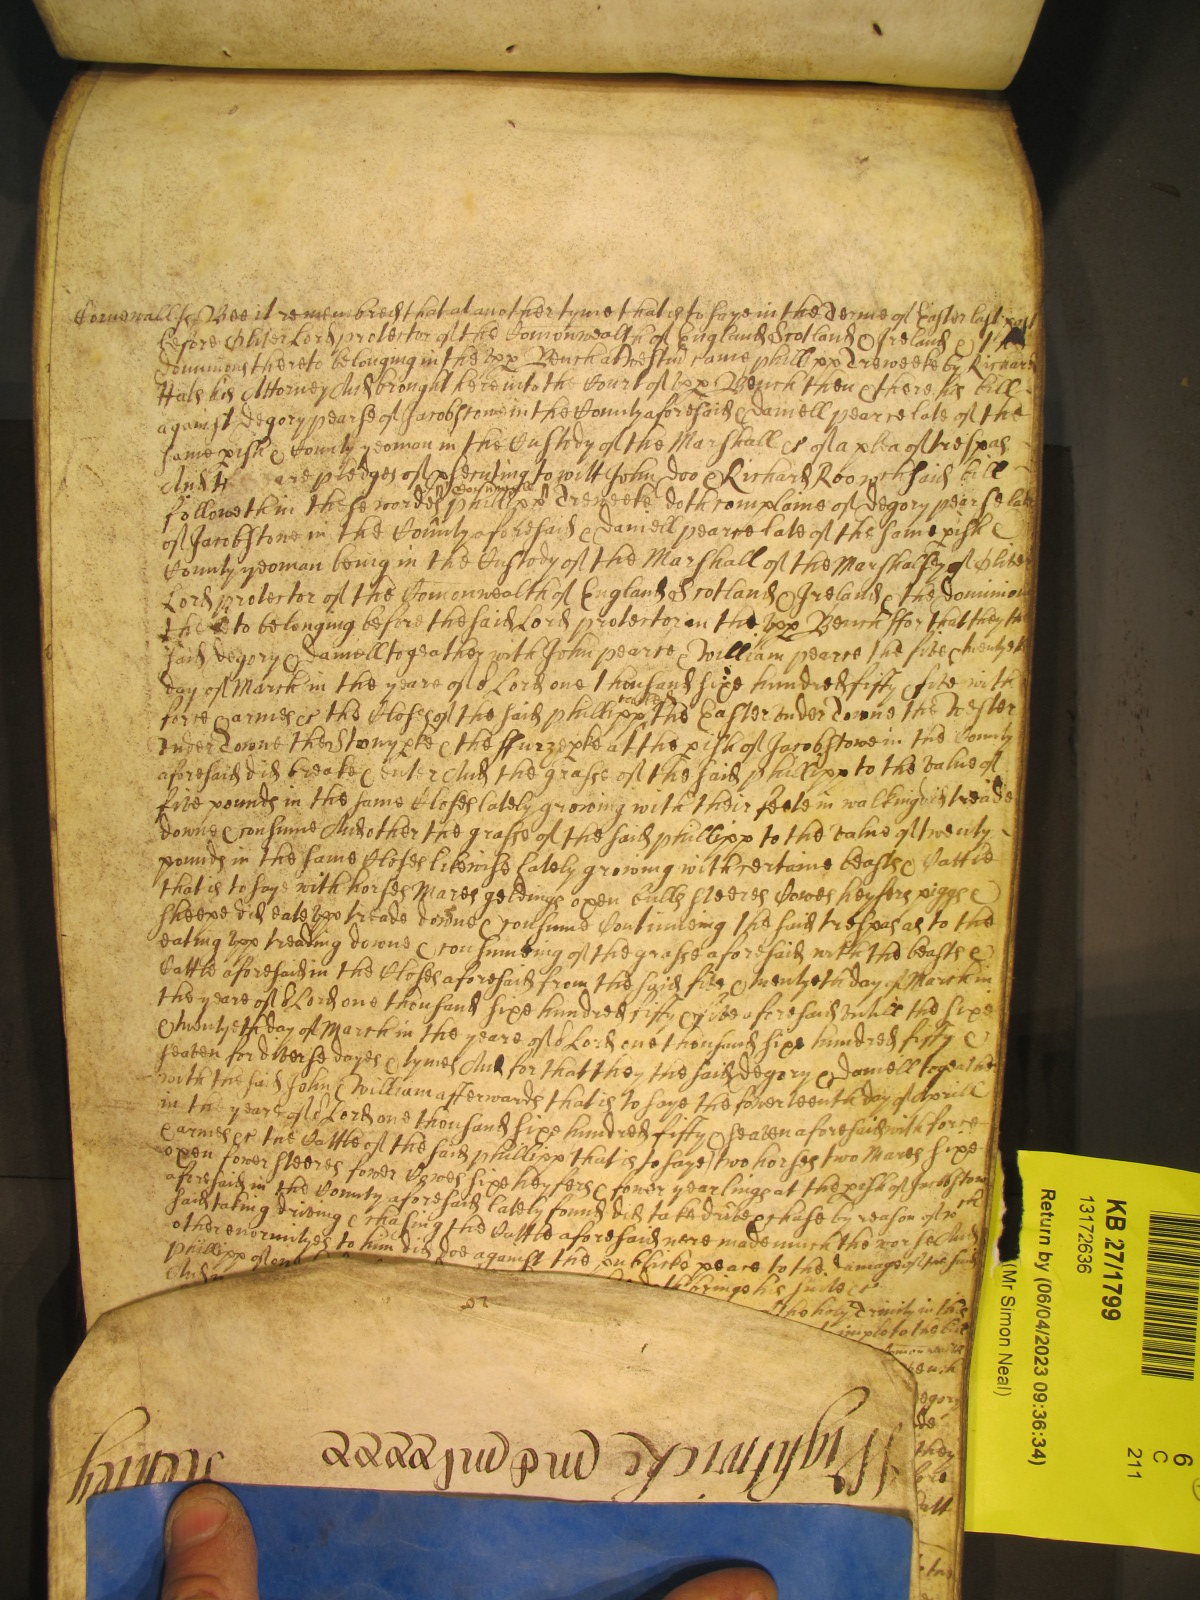 Cornewall ss Bee it remembred that at another tyme that is to saye in the Terme of Easter last past
before Oliver Lord protector of the Comonwealth of England Scotland & Ireland & the
dominions thereto belonging in the upp Bench at Westm came phillipp Treweeke by Richard
Hals his Attorney And brought here into the Court of upp Bench then & there his bill
against degory pearse of Jacobstowe in the County aforesaid & daniell pearce late of the
same pish & County yeoman in the Custody of the Marshall &c of a plea of trespas
And are pledges of psecuting to witt John doo & Richard Roo wch said bill
followeth in these wordes phillipp Treweeke doth complaine of degory pearse late
of Jacobstone in the County aforesaid & daniell pearce late of the same pish &
County yeoman being in the Custody of the Marshall of the Marshallsey of Oliver
Lord protector of the Comonwealth of England Scotland & Ireland & the dominions
thereto belonging before the said Lord protector in the upp Bench ffor that they the
said degory & daniell togeather with John pearce & William pearce the five & twentyeth
day of March in the yeare of or Lord one thousand sixe hundred fifty & five with
force & armes &c the Closes of the said phillipp called the Easter under Downe the Wester
under Downe the Stonypke & the ffurzepke at the pish of Jacobstowe in the County
aforesaid did breake & enter And the grasse of the said phillipp to the value of
five pounds in the same Closes lately growing with their feete in walking did treade
downe & consume And other the grasse of the said phillipp to the value of twenty
pounds in the same Closes likewise lately growing with certaine beasts & Cattle
that is to saye with horses Mares geldings oxen bulls steeres Cowes heyfers piggs &
sheepe did eate upp treade downe & consume Continueing the said trespas as to the
eating upp treading downe & consumeing of the grasse aforesaid with the beasts &
Cattle aforesaid in the Closes aforesaid from the said five & twentyeth day of March in
the yeare of or Lord one thousand sixe hundred fifty & five aforesaid untill the sixe
& twentyeth day of March in the yeare of or Lord one thousand sixe hundred fifty &
seaven for diverse dayes & tymes And for that they the said degory & daniell togeather
with the said John & William afterwards that is to saye the fowerteenth day of Aprill
in the yeare of or Lord one thousand sixe hundred fifty & seaven aforesaid with force
& armes &c the Cattle of the said phillipp that is to saye two horses two Mares sixe
oxen fower steeres fower Cowes sixe heyfers & fower yearlings at the pish of Jacobstow
aforesaid in the County aforesaid lately found did take drive & chase by reason of wch
said taking driving & chasing the Cattle aforesaid were made much the worse And
other enormityes to him did doe against the publicke peace to the damage of the said
phillipp of
And bringe his suite &c
the holy Trinity in this
imple to the bill
Bench
egory
they
Wightwicke
KB 27/1799
13172636
Return by (06/04/2023 09:36:34)
(Mr Simon Neal)
6
C
211